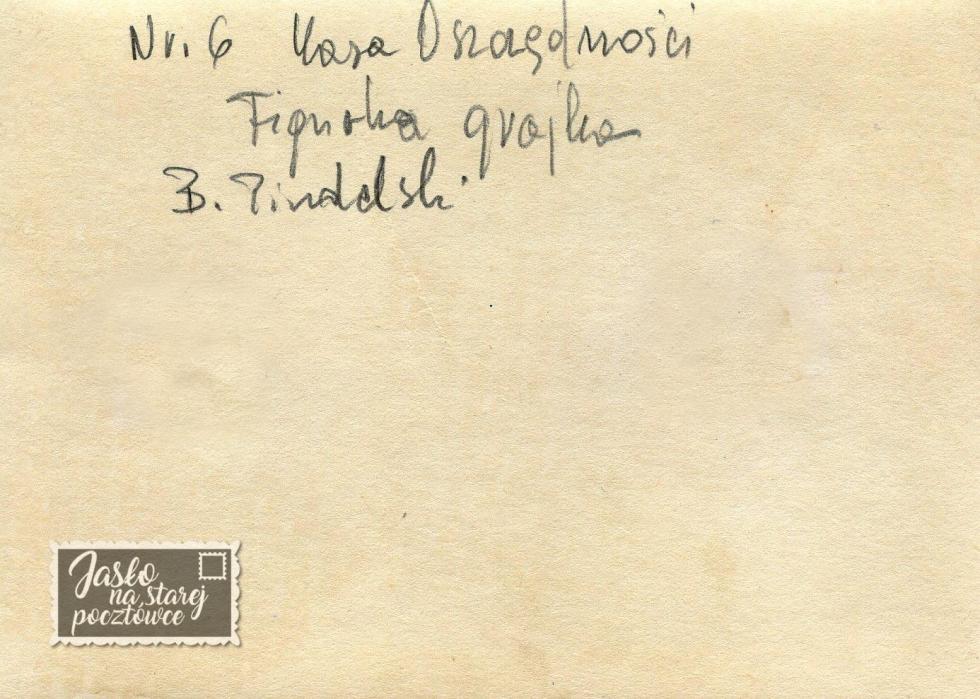 Nr. 6 Kasa Oszczędności
Figurka grajka
B.
Jasło
na starej
pocztówce